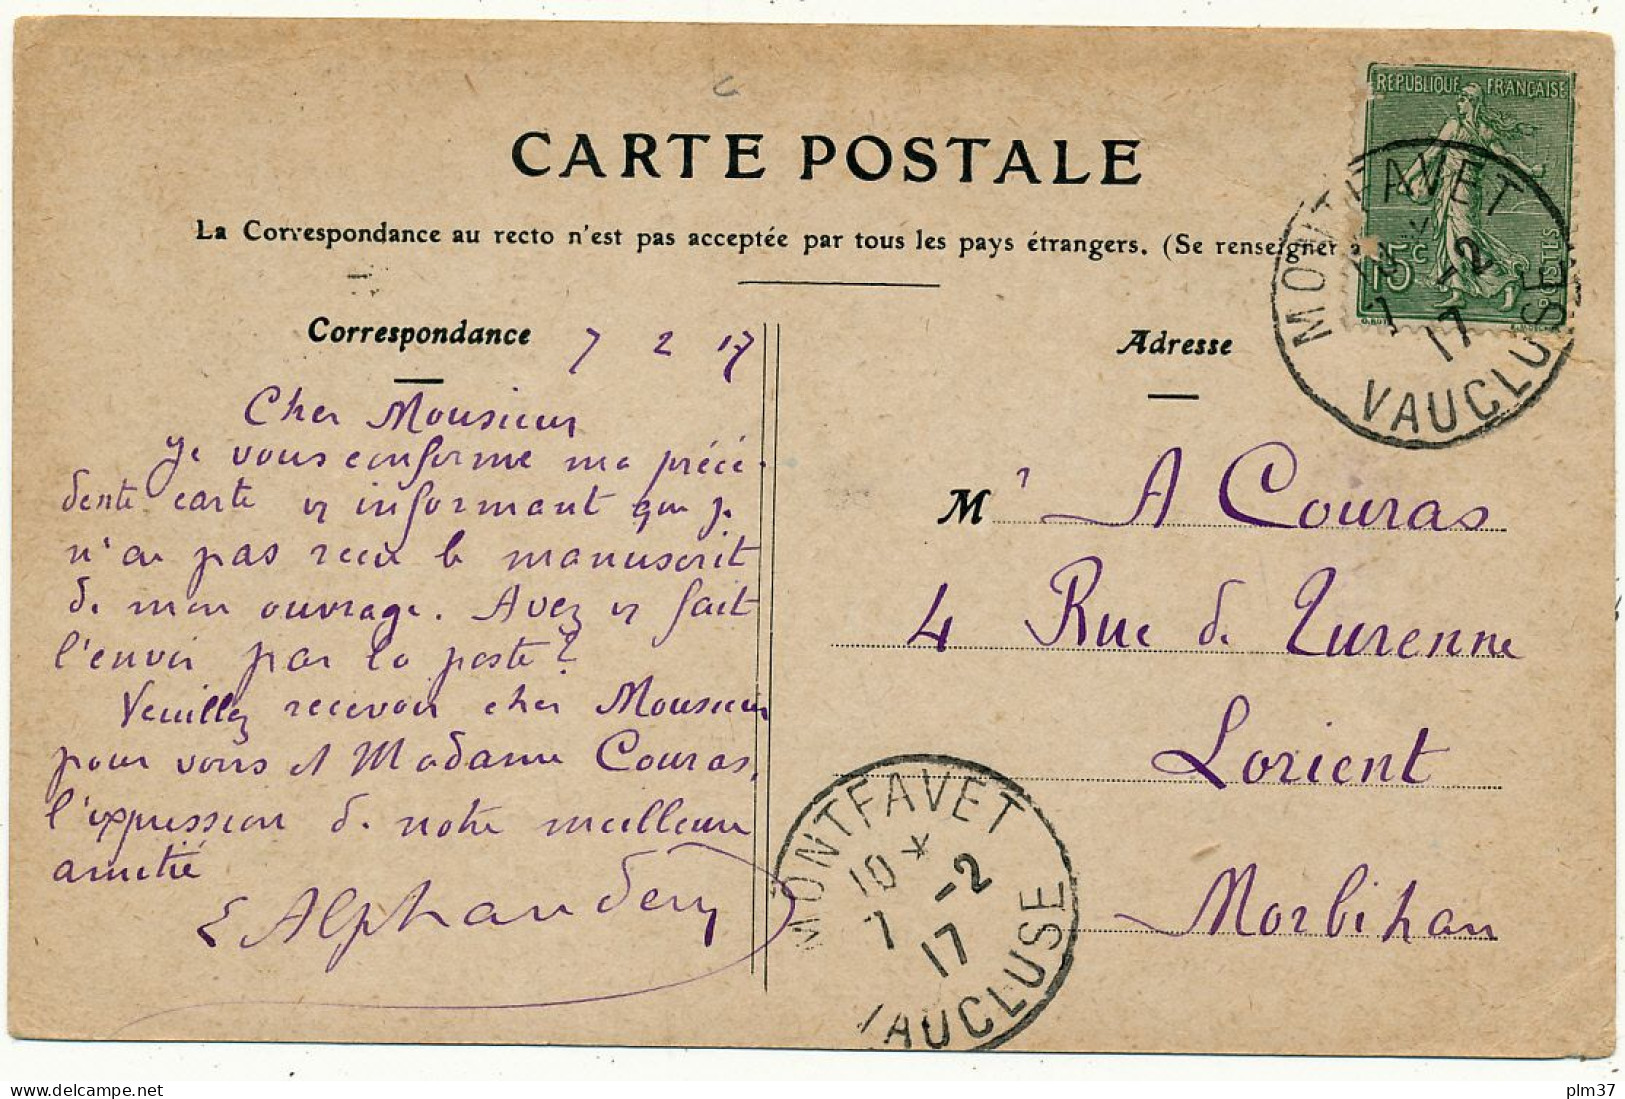 REPUBLIQUE FRANÇAISE
15c
POSTES
MONTFAVET
7 -2
17
VAUCLUSE
CARTE POSTALE
La Correspondance au recto n'est pas acceptée par tous les pays étrangers. (Se renseigner à
Correspondance
7 2 17
Cher Monsieur
Je vous confirme ma précé-
dente carte vs informant que je
n'ai pas reçu le manuscrit
de mon ouvrage. Avez vs fait
l'envoi par la poste?
Veuillez recevoir cher Monsieur
pour vous et Madame Couras,
l'expression de notre meilleure
amitié
E Alphandery
Adresse
Mr A Couras
4 Rue de Turenne
Lorient
Morbihan
MONTFAVET
10 *
7 -2
17
VAUCLUSE
plm37